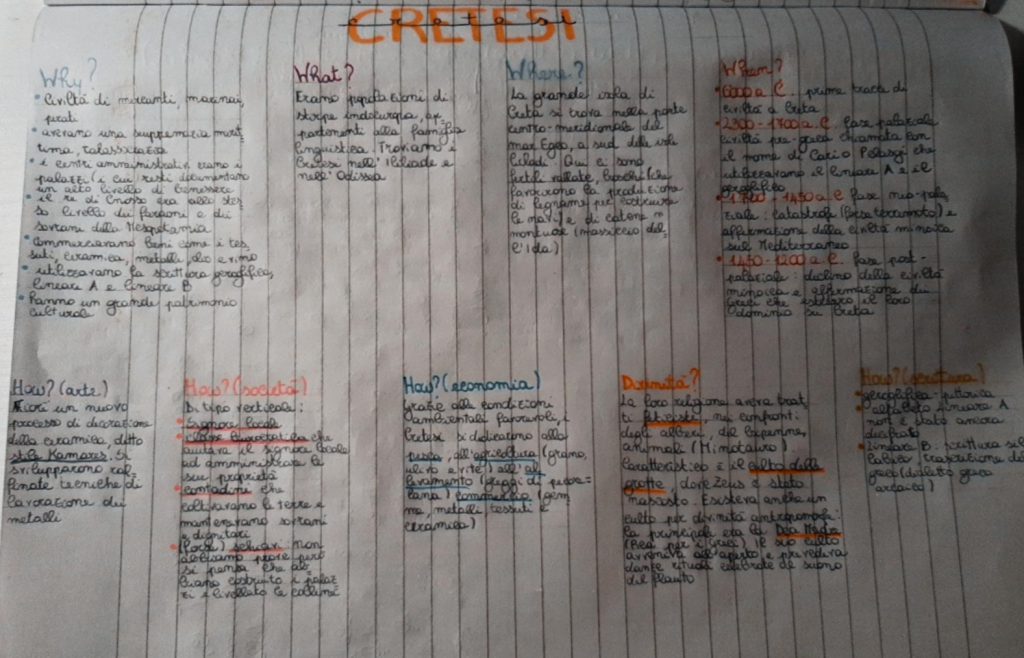 CRETESI
cretesi
Why?
• Civiltà di mercanti, marinai,
pirati
• avevano una supremazia marit
tima, talassocrazia
• i centri amministrativi erano i
palazzi (i cui resti documentano
un alto livello di benessere
• il re di Cnosso era allo stes
so livello dei faraoni e dei
sovrani della Mesopotamia
• Commerciavano beni come i tes
suti, ceramica, metalli, olio e vino
• utilizzavano la scrittura geroglifica,
lineare A e lineare B
• Hanno un grande patrimonio
culturale
What?
Erano popolazioni di
stirpe indoeuropea, ap
partenenti alla famiglia
linguistica Troviamo i
Cretesi nell' Iliade e
nell' Odissea
Where?
La grande isola di
Creta si trova nella parte
centro-meridionale del
mar Egeo, a sud delle isole
Cicladi. Qui ci sono
fertili vallate, boschi (che
favorirono la produzione
di legname per costruire
le navi) e di catene m
montuose (massiccio del
l'Ida)
When?
• 6000 a.C. prime tracce di
civiltà a Creta
• 2300-1700 a.C. fase palaziale
civiltà pre-greca chiamata con
il nome di Cari o Pelasgi che
utilizzavano il lineare A e il
geroglifico
• 1700-1450 a.C. fase neo-pala
ziale: catastrofe (forse terremoto) e
affermazione della civiltà minoica
sul Mediterraneo
• 1450-1200 a.C. fase post-
palaziale: declino della civiltà
minoica e affermazione dei
Greci che estesero il loro
dominio su Creta
How? (arte)
un nuovo
processo di decorazione
della ceramica, ditto
stile Kamares. Si
svilupparono raf
finate tecniche di
lavorazione dei
metalli
How? (società)
Di tipo verticale:
• Signore locale
• classe burocratica che
aiutava il signore locale
ad amministrare le
sue proprietà
• contadini che
coltivavano le terre e
mantenevano sovrani
e dignitari
• (forse) schiavi: non
abbiamo prove però
si pensa che ab
biano costruito i palaz
zi e livellato le colline
How? (economia)
Grazie alle condizioni
ambientali favorevoli, i
Cretesi si dedicarono alla
pesca, all'agricoltura (grano,
ulivo e vite) all'al
levamento (greggi di pecore=
lana) commercio (gem
me, metalli, tessuti e
ceramica)
Divinità?
La loro religione aveva trat
ti feticisti, nei confronti
degli alberi, del bipenne,
animali (Minotauro)
Caratteristico è il culto delle
grotte, dove Zeus è stato
nascosto. Esisteva anche un
culto per divinità antropomorfe:
la principale era la Dea Madre
(Rea per i Greci) Il suo culto
avveniva all'aperto e prevedeva
danze rituali celebrate al suono
del flauto
How? (scrittura)
• geroglifica-pittorica
• l'alfabeto lineare A
non è stato ancora
decifrato
• lineare B: scrittura sil
labica (trascrizione del
greco (dialetto greco
arcaico)